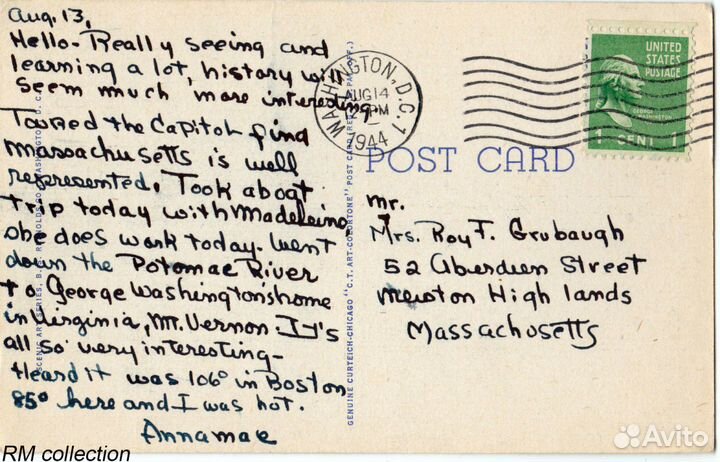 Aug. 13,
Hello- Really seeing and
learning a lot, history will
seem much more interesting.
Toured the Capitol find
Massachusetts is well
represented. Took a boat
trip today with Madeleine,
she does work today. Went
down the Potomac River
to George Washington's home
in Virginia, Mt. Vernon. It's
all so very interesting-
Heard it was 106° in Boston
85° here and I was hot.
Annamae
GENUINE CURTEICH-CHICAGO "C.T. ART-COLORTONE" POST CARD
WASHINGTON, D.C. 1
AUG 14
PM
1944
UNITED
STATES
POSTAGE
GEORGE WASHINGTON
1 CENT 1
POST CARD
Mr.
Mrs. Roy F. Grubaugh
52 Aberdeen Street
Newton Highlands
Massachusetts
RM collection
Avito